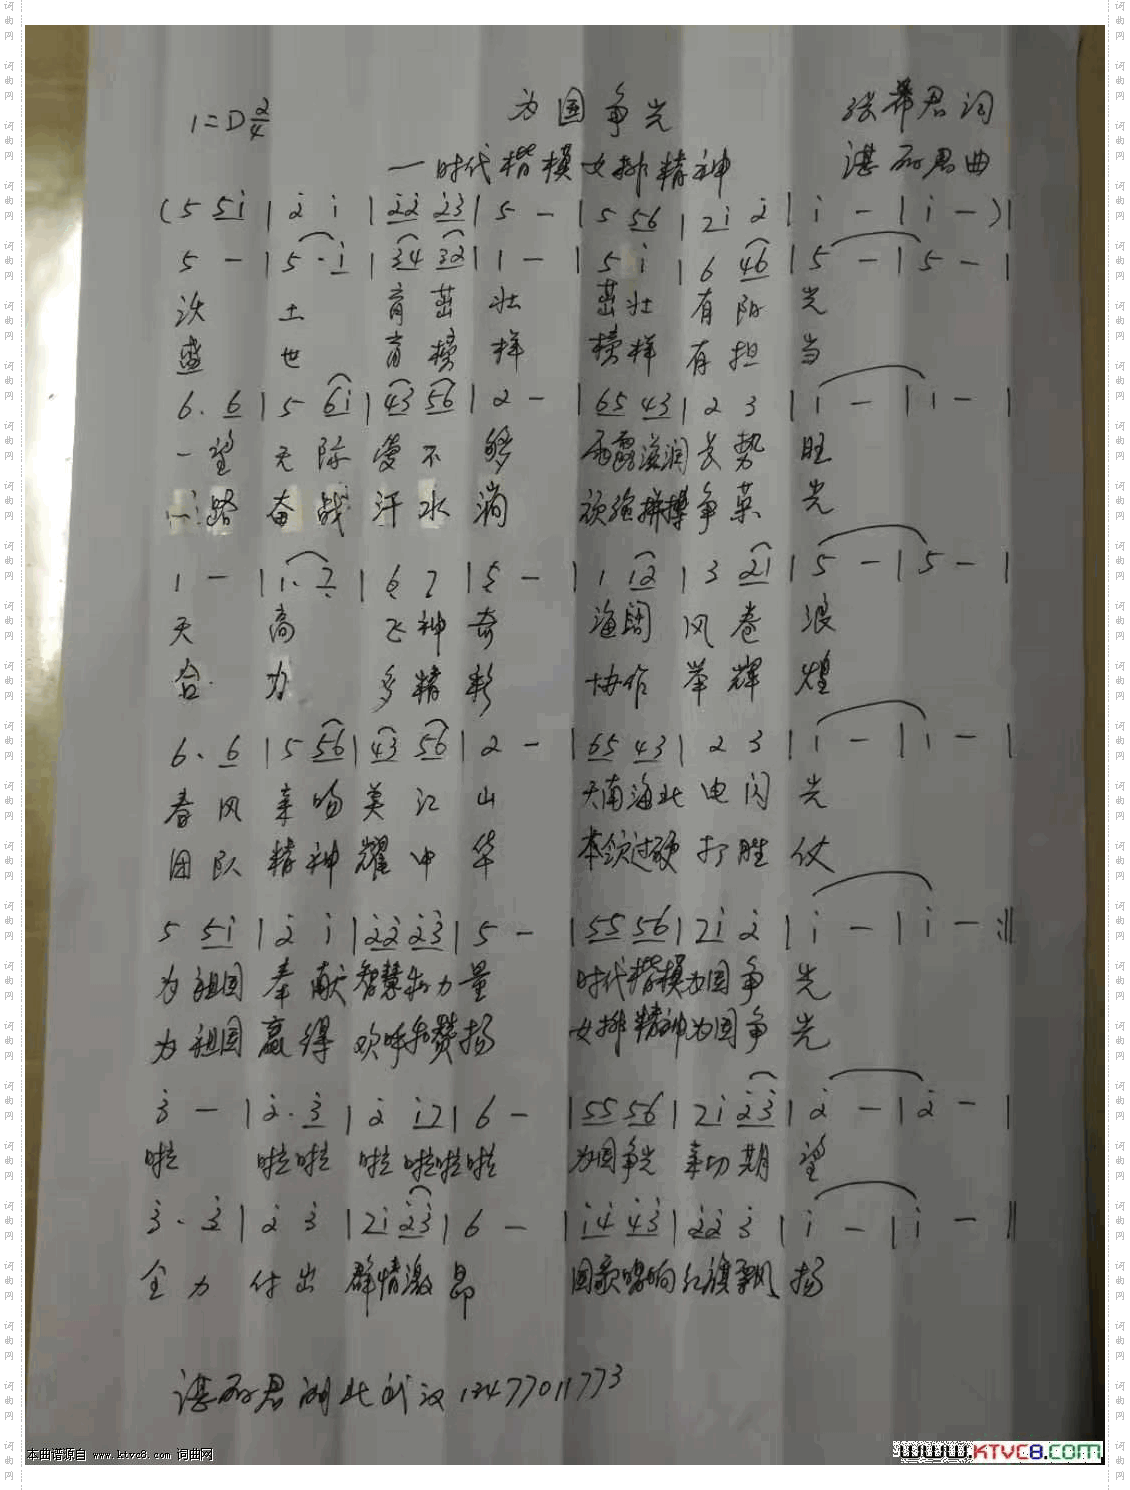 1=D 2/4
为国争光
张希君词
—时代楷模女排精神
曲
(5 5i | 2 i | 22 23 | 5 - | 5 56 | 7i 2 | i - | i - ) |
5 - | 5 · i | 34 32 | 1 - | 5 i | 6 46 | 5 - | 5 - |
沃 土 育茁壮 茁壮有阳光
盛 世 育榜样 榜样有担当
6. 6 | 5 6i | 43 56 | 2 - | 65 43 | 2 3 | 1 - | 1 - |
一望无际爱不够 雨露滋润长势旺
一路奋战汗水淌 顽强拼搏争荣光
1 - | 1. 7 | 6 7 | 5 - | 1 12 | 3 21 | 5 - | 5 - |
天 高 飞神奇 海阔风卷浪
合 力 多精彩 协作举辉煌
6. 6 | 5 56 | 43 56 | 2 - | 65 43 | 2 3 | 1 - | 1 - |
春风亲吻美江山 天南海北电闪光
团队精神耀中华 本领过硬打胜仗
5 5i | 2 i | 22 23 | 5 - | 55 56 | 7i 2 | i - | i - :||
为祖国奉献智慧和力量 时代楷模为国争光
为祖国赢得欢呼和赞扬 女排精神为国争光
3 - | 2. 3 | 2 i7 | 6 - | 55 56 | 7i 23 | 2 - | 2 - |
啦 啦啦 啦啦啦啦 为国争光亲切期望
3. 3 | 2 3 | 7i 23 | 6 - | i4 43 | 22 3 | i - | i - ||
全力付出群情激昂 国歌唱响红旗飘扬
湖北武汉 13477011773
本曲谱源自 www.ktvc8.com 词曲网
www.KTVC8.com